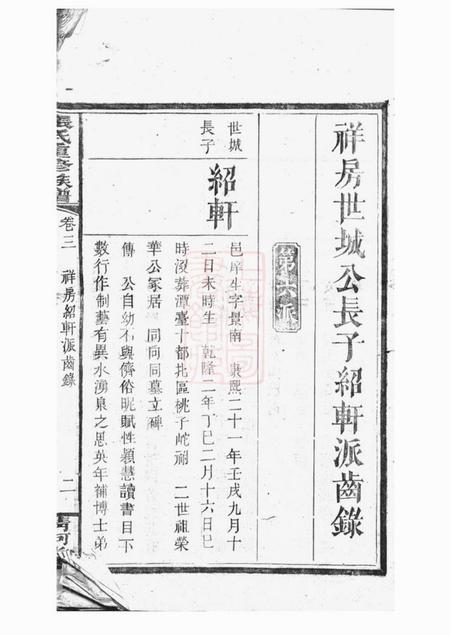 祥房世城公長子紹軒派齒錄
第六派
世城
長子
紹軒
邑庠生字景南 康熙二十一年壬戌九月十
二日未時生 乾隆二年丁巳二月十六日巳
時沒葬潭臺十都北區桃子岾祔 二世祖榮
華公冢居 同同同墓立碑
傳 公自幼不與儕俗昵賦性穎慧讀書目下
數行作制藝有異水湧泉之思英年補博士弟
張氏重修族譜
卷三
祥房紹軒派齒錄
二
清河